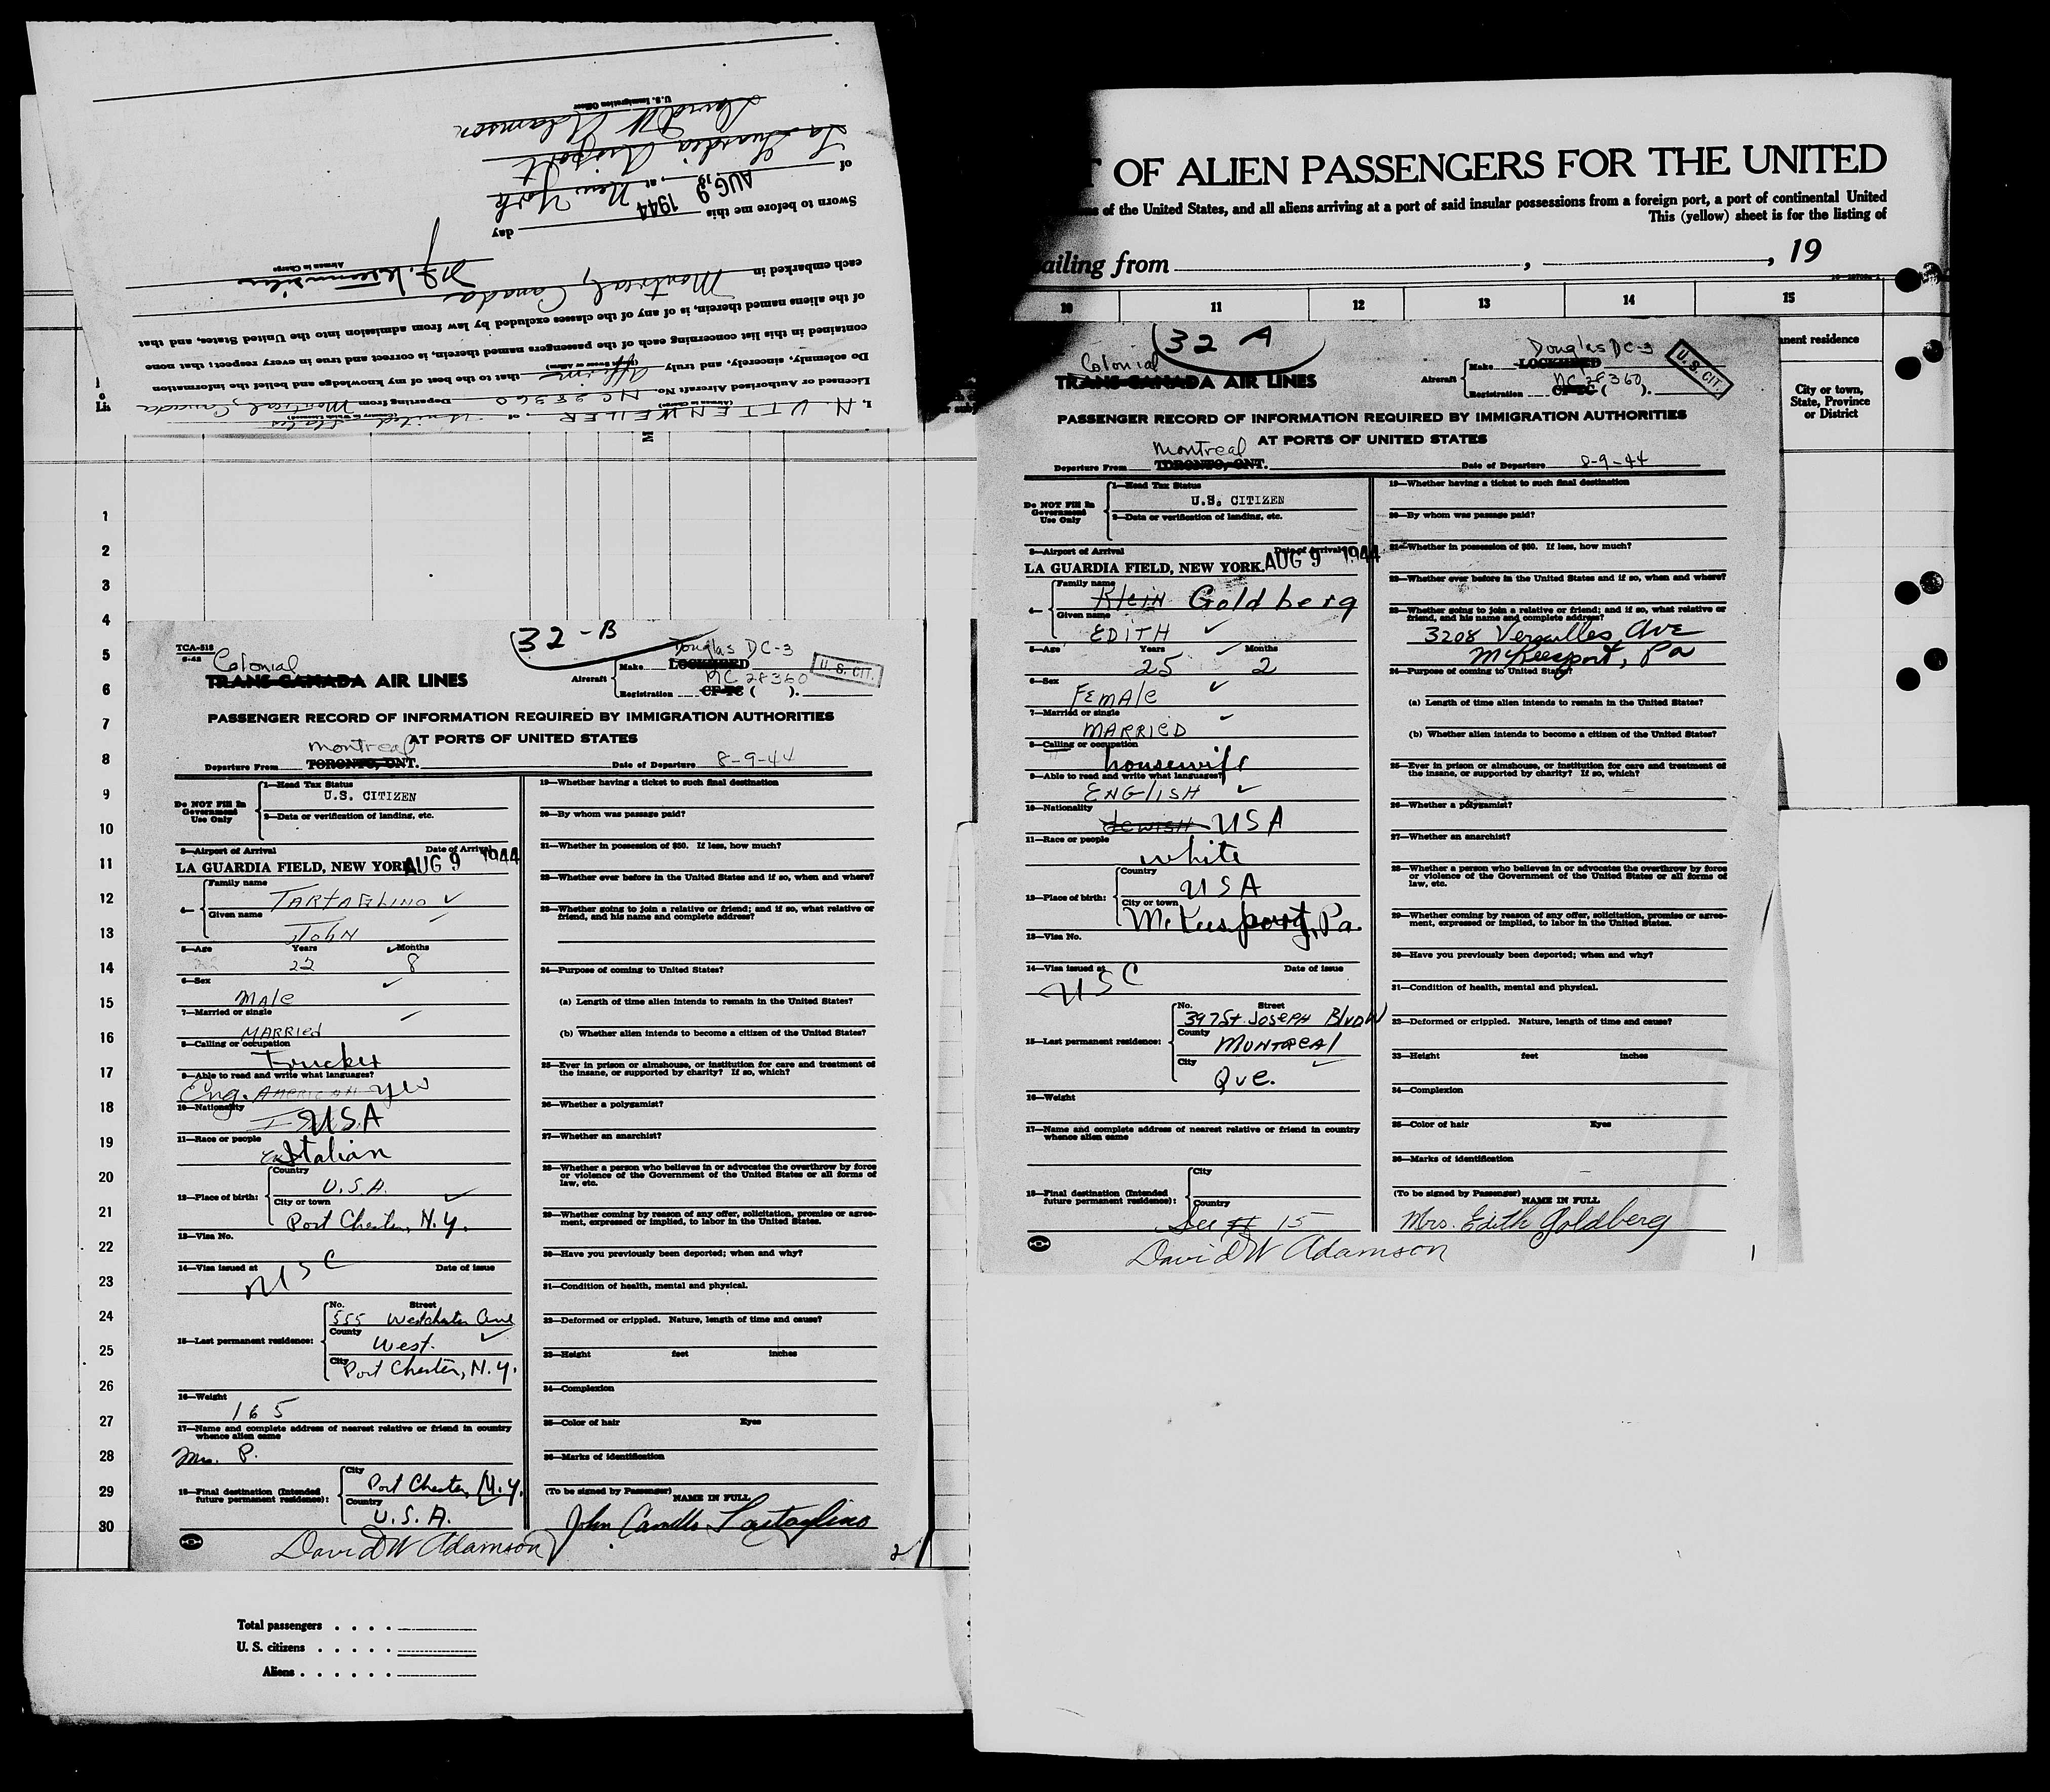 I, N. UTTENWEILER of United States
(Airman in Charge)
Licensed or Authorized Aircraft No. NC 28360 Departing from Montreal, Canada
Do solemnly, sincerely, and truly affirm that to the best of my knowledge and belief the information
contained in this list concerning each of the passengers named therein, is correct and true in every respect; that none
of the aliens named therein, is of any of the classes excluded by law from admission into the United States, and that
each embarked in Montreal, Canada
Airman in Charge
Sworn to before me this AUG 9 1944 day
of 19 , at New York
La Guardia Airport
David W Adamson
U. S. Immigration Officer
T OF ALIEN PASSENGERS FOR THE UNITED
of the United States, and all aliens arriving at a port of said insular possessions from a foreign port, a port of continental United
This (yellow) sheet is for the listing of
ailing from , , 19
10 11 12 13 14 15
nent residence
City or town,
State, Province
or District
1
2
3
4
5
6
7
8
9
10
11
12
13
14
15
16
17
18
19
20
21
22
23
24
25
26
27
28
29
30
TCA-518
32-B
Colonial
TRANS-CANADA AIR LINES
Aircraft
Make Douglas DC-3
LOCKHEED
Registration NC 28360
CF-TC ( ).
U.S. CIT.
PASSENGER RECORD OF INFORMATION REQUIRED BY IMMIGRATION AUTHORITIES
AT PORTS OF UNITED STATES
Departure From Montreal
TORONTO, ONT.
Date of Departure 8-9-44
Do NOT Fill In
Government
Use Only
1—Head Tax Status
U.S. CITIZEN
2—Data or verification of landing, etc.
3—Airport of Arrival Date of Arrival
LA GUARDIA FIELD, NEW YORK AUG 9 1944
4—
Family name
TARTAGLINO
Given name
JOHN
5—Age Years Months
22 8
6—Sex
Male
7—Married or single
MARRIED
8—Calling or occupation
Trucker
9—Able to read and write what languages?
Eng. AMERICAN yes
10—Nationality
USA
11—Race or people
Italian
12—Place of birth:
Country
U.S.A.
City or town
Port Chester, N.Y.
13—Visa No.
14—Visa issued at Date of issue
USC
15—Last permanent residence:
No. Street
555 Westchester Ave
County
West.
City
Port Chester, N.Y.
16—Weight
165
17—Name and complete address of nearest relative or friend in country
whence alien came
Mrs. P.
18—Final destination (Intended
future permanent residence):
City
Port Chester, N.Y.
Country
U.S.A.
David W Adamson
19—Whether having a ticket to such final destination
20—By whom was passage paid?
21—Whether in possession of $50. If less, how much?
22—Whether ever before in the United States and if so, when and where?
23—Whether going to join a relative or friend; and if so, what relative or
friend, and his name and complete address?
24—Purpose of coming to United States?
(a) Length of time alien intends to remain in the United States?
(b) Whether alien intends to become a citizen of the United States?
25—Ever in prison or almshouse, or institution for care and treatment of
the insane, or supported by charity? If so, which?
26—Whether a polygamist?
27—Whether an anarchist?
28—Whether a person who believes in or advocates the overthrow by force
or violence of the Government of the United States or all forms of
law, etc.
29—Whether coming by reason of any offer, solicitation, promise or agree-
ment, expressed or implied, to labor in the United States.
30—Have you previously been deported; when and why?
31—Condition of health, mental and physical.
32—Deformed or crippled. Nature, length of time and cause?
33—Height feet inches
34—Complexion
35—Color of hair Eyes
36—Marks of identification
(To be signed by Passenger)
NAME IN FULL
John Camillo Tartaglino
2
Total passengers . . . .
U. S. citizens . . . . .
Aliens . . . . . .
32 A
Colonial
TRANS-CANADA AIR LINES
Aircraft
Make Douglas DC-3
LOCKHEED
Registration NC 28360
CF-TC ( ).
U.S. CIT.
PASSENGER RECORD OF INFORMATION REQUIRED BY IMMIGRATION AUTHORITIES
AT PORTS OF UNITED STATES
Departure From Montreal
TORONTO, ONT.
Date of Departure 8-9-44
Do NOT Fill In
Government
Use Only
1—Head Tax Status
U.S. CITIZEN
2—Data or verification of landing, etc.
3—Airport of Arrival Date of Arrival
LA GUARDIA FIELD, NEW YORK. AUG 9 1944
4—
Family name
Klein Goldberg
Given name
EDITH
5—Age Years Months
25 2
6—Sex
Female
7—Married or single
MARRIED
8—Calling or occupation
housewife
9—Able to read and write what languages?
ENGLISH
10—Nationality
Jewish USA
11—Race or people
white
12—Place of birth:
Country
USA
City or town
McKeesport, Pa.
13—Visa No.
14—Visa issued at Date of issue
USC
15—Last permanent residence:
No. Street
397 St. Joseph Blvd W
County
MONTREAL
City
Que.
16—Weight
17—Name and complete address of nearest relative or friend in country
whence alien came
18—Final destination (Intended
future permanent residence):
City
Country
See # 15
David W Adamson
19—Whether having a ticket to such final destination
20—By whom was passage paid?
21—Whether in possession of $50. If less, how much?
22—Whether ever before in the United States and if so, when and where?
23—Whether going to join a relative or friend; and if so, what relative or
friend, and his name and complete address?
3208 Versailles Ave
McKeesport, Pa
24—Purpose of coming to United States?
(a) Length of time alien intends to remain in the United States?
(b) Whether alien intends to become a citizen of the United States?
25—Ever in prison or almshouse, or institution for care and treatment of
the insane, or supported by charity? If so, which?
26—Whether a polygamist?
27—Whether an anarchist?
28—Whether a person who believes in or advocates the overthrow by force
or violence of the Government of the United States or all forms of
law, etc.
29—Whether coming by reason of any offer, solicitation, promise or agree-
ment, expressed or implied, to labor in the United States.
30—Have you previously been deported; when and why?
31—Condition of health, mental and physical.
32—Deformed or crippled. Nature, length of time and cause?
33—Height feet inches
34—Complexion
35—Color of hair Eyes
36—Marks of identification
(To be signed by Passenger)
NAME IN FULL
Mrs. Edith Goldberg
1